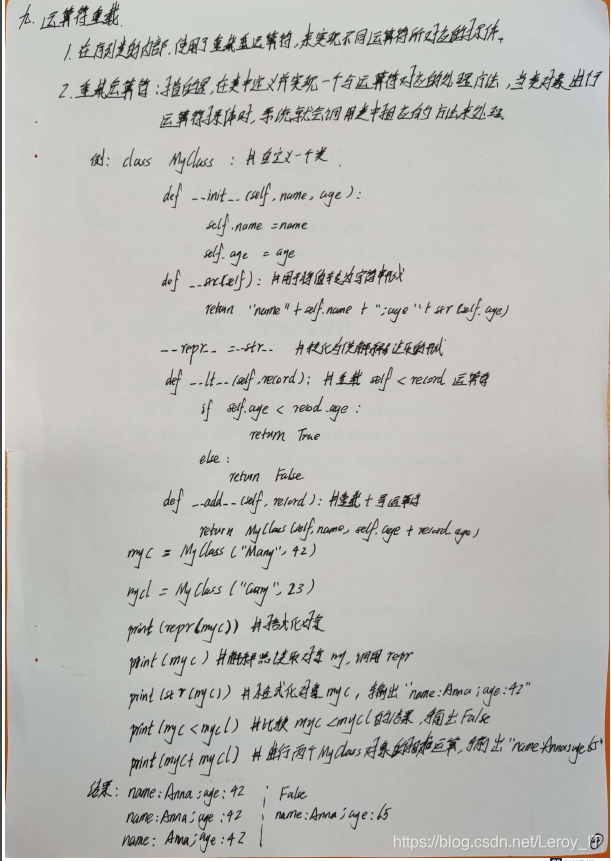 九. 运算符重载
1. 在序列类的内部, 使用了重载运算符, 来实现不同运算符所对应的操作。
2. 重载运算符: 指的是, 在类中定义并实现一个与运算符对应的处理方法, 当类对象进行
运算符操作时, 系统就会调用类中相应的方法来处理。
例: class MyClass : #自定义一个类
def __init__(self, name, age):
self.name = name
self.age = age
def __str(self): #用于将值转化为字符串形式
return "name" + self.name + ";age" + str(self.age)
__repr__ = __str__ #转化为供解释器读取的形式
def __lt__(self, record): #重载 self < record 运算符
if self.age < record.age :
return True
else :
return False
def __add__(self, record): #重载 + 号运算符
return MyClass(self.name, self.age + record.age)
myc = MyClass ("Many", 42)
mycl = MyClass ("Gary", 23)
print(repr(myc)) #格式化对象
print(myc) #解释器读取对象 my, 调用 repr
print(str(myc)) #格式化对象 myc, 输出 "name:Anna;age:42"
print(myc < mycl) #比较 myc<mycl 的结果, 输出 False
print(myc+mycl) #进行两个 MyClass 对象的相加运算, 输出 "name:Anna;age:65"
结果: name:Anna;age:42 False
name:Anna;age:42 name:Anna;age:65
name: Anna;age:42
https://blog.csdn.net/Leroy_